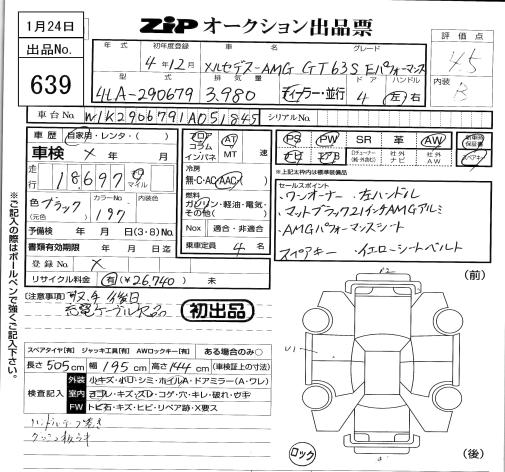 1月24日
ZiP オークション出品票
評価点
4.5
内装
B
出品No.
639
年式
初年度登録
車名
グレード
4年12月
メルセデス-AMG GT63S Eパフォーマンス
型式
排気量
ドア
ハンドル
4LA-290679
3.980
ディーラー・並行
4
左 右
車台No
W1K2906791A051845
シリアルNo
車歴
自家用・レンタ・( )
車検 × 年 月
走行
18,697
km マイル
色 ブラック
(元色)
カラーNo
197
内装色
予備検 年 月 日(3・8)No
書類有効期限 年 月 日迄
登録No ×
リサイクル料金 (有)(¥26,740) 未
フロア コラム インパネ
AT
MT
速
冷房
無・C・AC・AAC
燃料
ガソリン・軽油・電気・その他( )
Nox 適合・非適合
乗車定員 4 名
PS
PW
SR
革
AW
ナビ
TV
社外ナビ
社外AW
新車時保証書
スペアキー
※上記太枠内は標準装備品
セールスポイント
・ワンオーナー ・左ハンドル
・マットブラック21インチAMGアルミ
・AMGパフォーマンスシート
スペアキー ・イエローシートベルト
[注意事項]
充電ケーブル欠品
初出品
スペアタイヤ[有] ジャッキ工具[有] AWロックキー[有] ある場合のみ○
長さ 505cm 幅 195cm 高さ 144cm (車検証上の寸法)
検査記入
外装 小キズ・小凹・シミ・ホイルA・ドアミラー(A・ワレ)
室内 ヨゴレ・キズ・スレ・コゲ・穴・キレ・破れ・ウキ
FW トビ石・キズ・ヒビ・リペア跡・X要ス
(前)
(後)
U1
ロック
※ご記入の際はボールペンで強くご記入下さい。